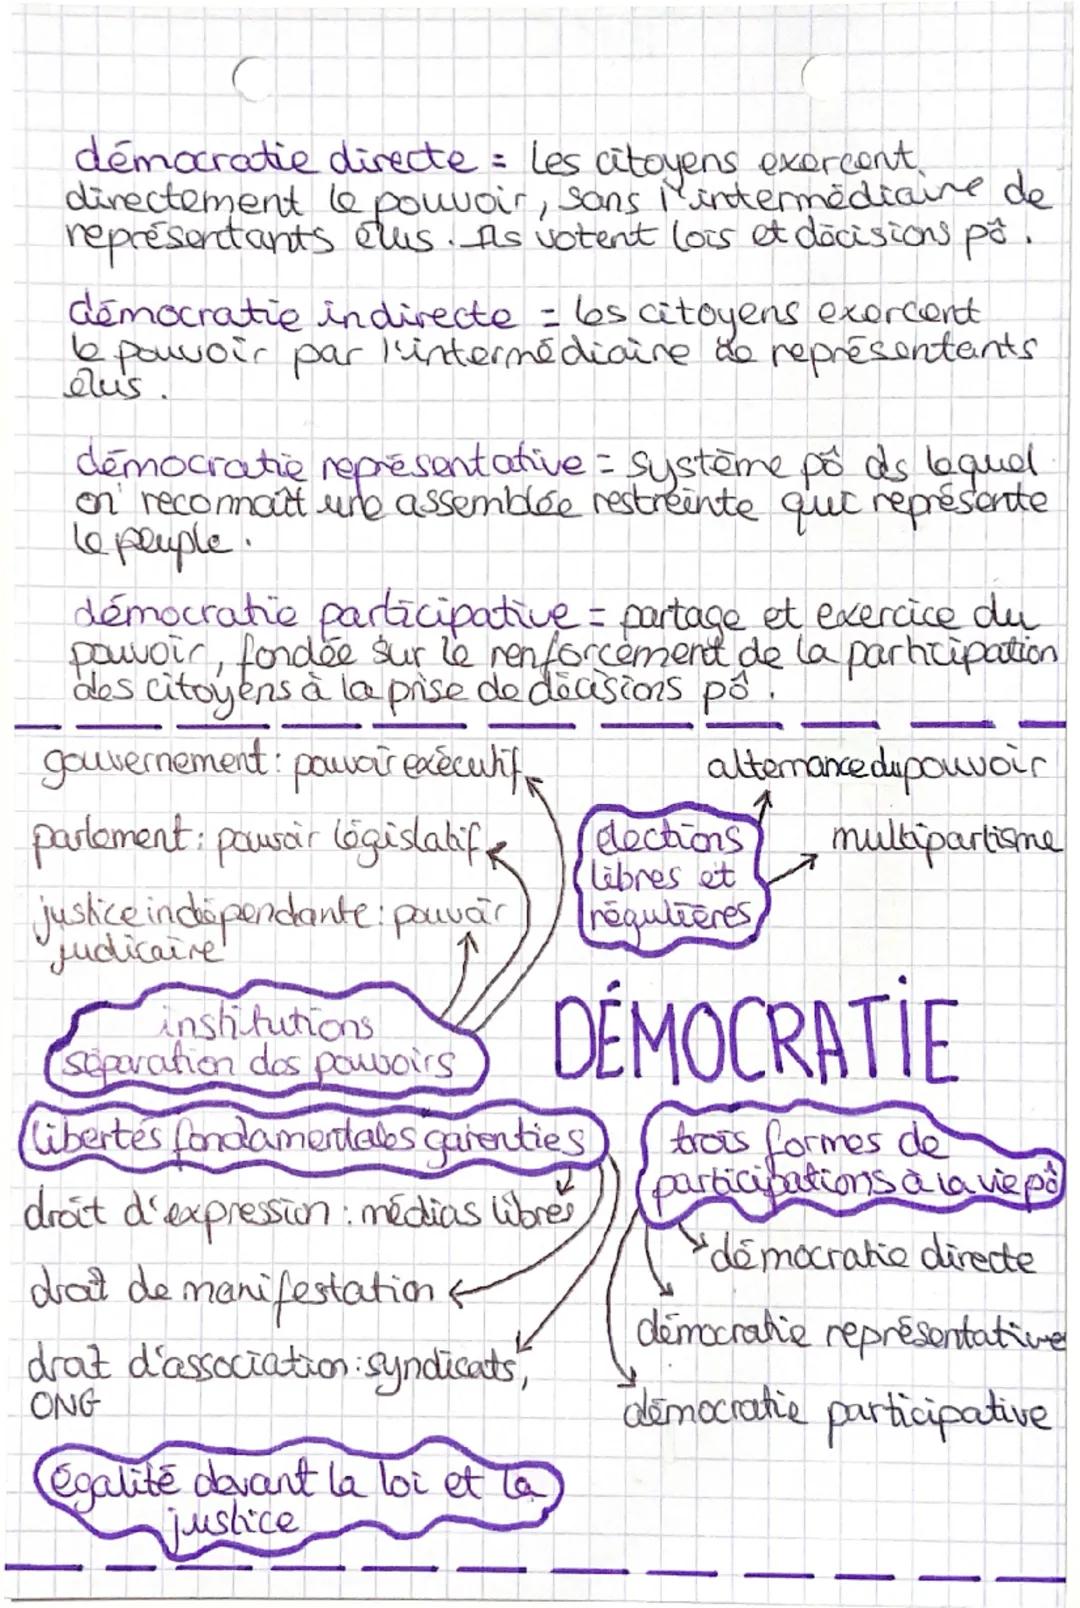 démocratie directe = les citoyens exercent
directement le pouvoir, sans l'intermédiaire de
représentants élus. Ils votent lois et décisions pô.
démocratie indirecte = les citoyens exercent
le pouvoir par l'intermédiaire de représentants
élus.
démocratie représentative = système pô ds lequel
on reconnaît une assemblée restreinte qui représente
le peuple.
démocratie participative = partage et exercice du
pouvoir, fondée sur le renforcement de la participation
des citoyens à la prise de décisions pô.
gouvernement : pouvoir exécutif
parlement : pouvoir législatif
justice indépendante : pouvoir
judicaire
institutions
séparation des pouvoirs
alternance du pouvoir
élections
libres et
régulières
multipartisme
DÉMOCRATIE
libertés fondamentales garenties
droit d'expression : médias libres
droit de manifestation
droit d'association : syndicats,
ONG
trois formes de
participations à la vie pô
démocratie directe
démocratie représentative
démocratie participative
égalité devant la loi et la
justice